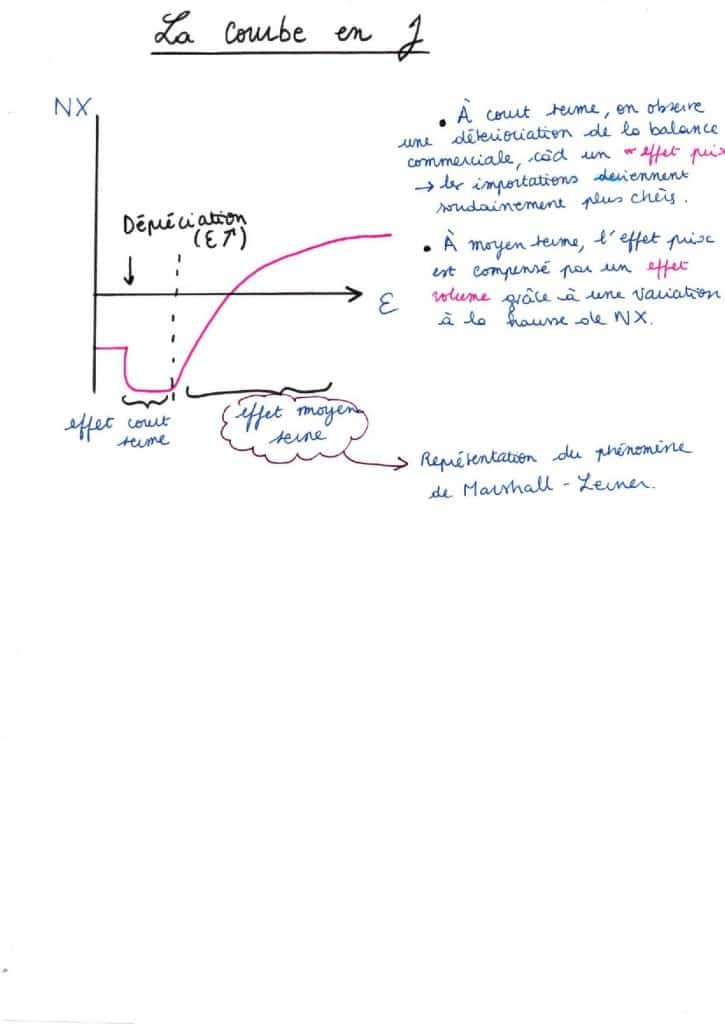 La courbe en J
NX
Dépréciation
(ε↑)
ε
effet court
terme
effet moyen
terme
• À court terme, on observe
une détérioriation de la balance
commerciale, càd un effet prix
→ les importations deviennent
soudainement plus chères.
• À moyen terme, l'effet prix
est compensé par un effet
volume grâce à une variation
à la hausse de NX.
Représentation du phénomène
de Marshall - Lerner.